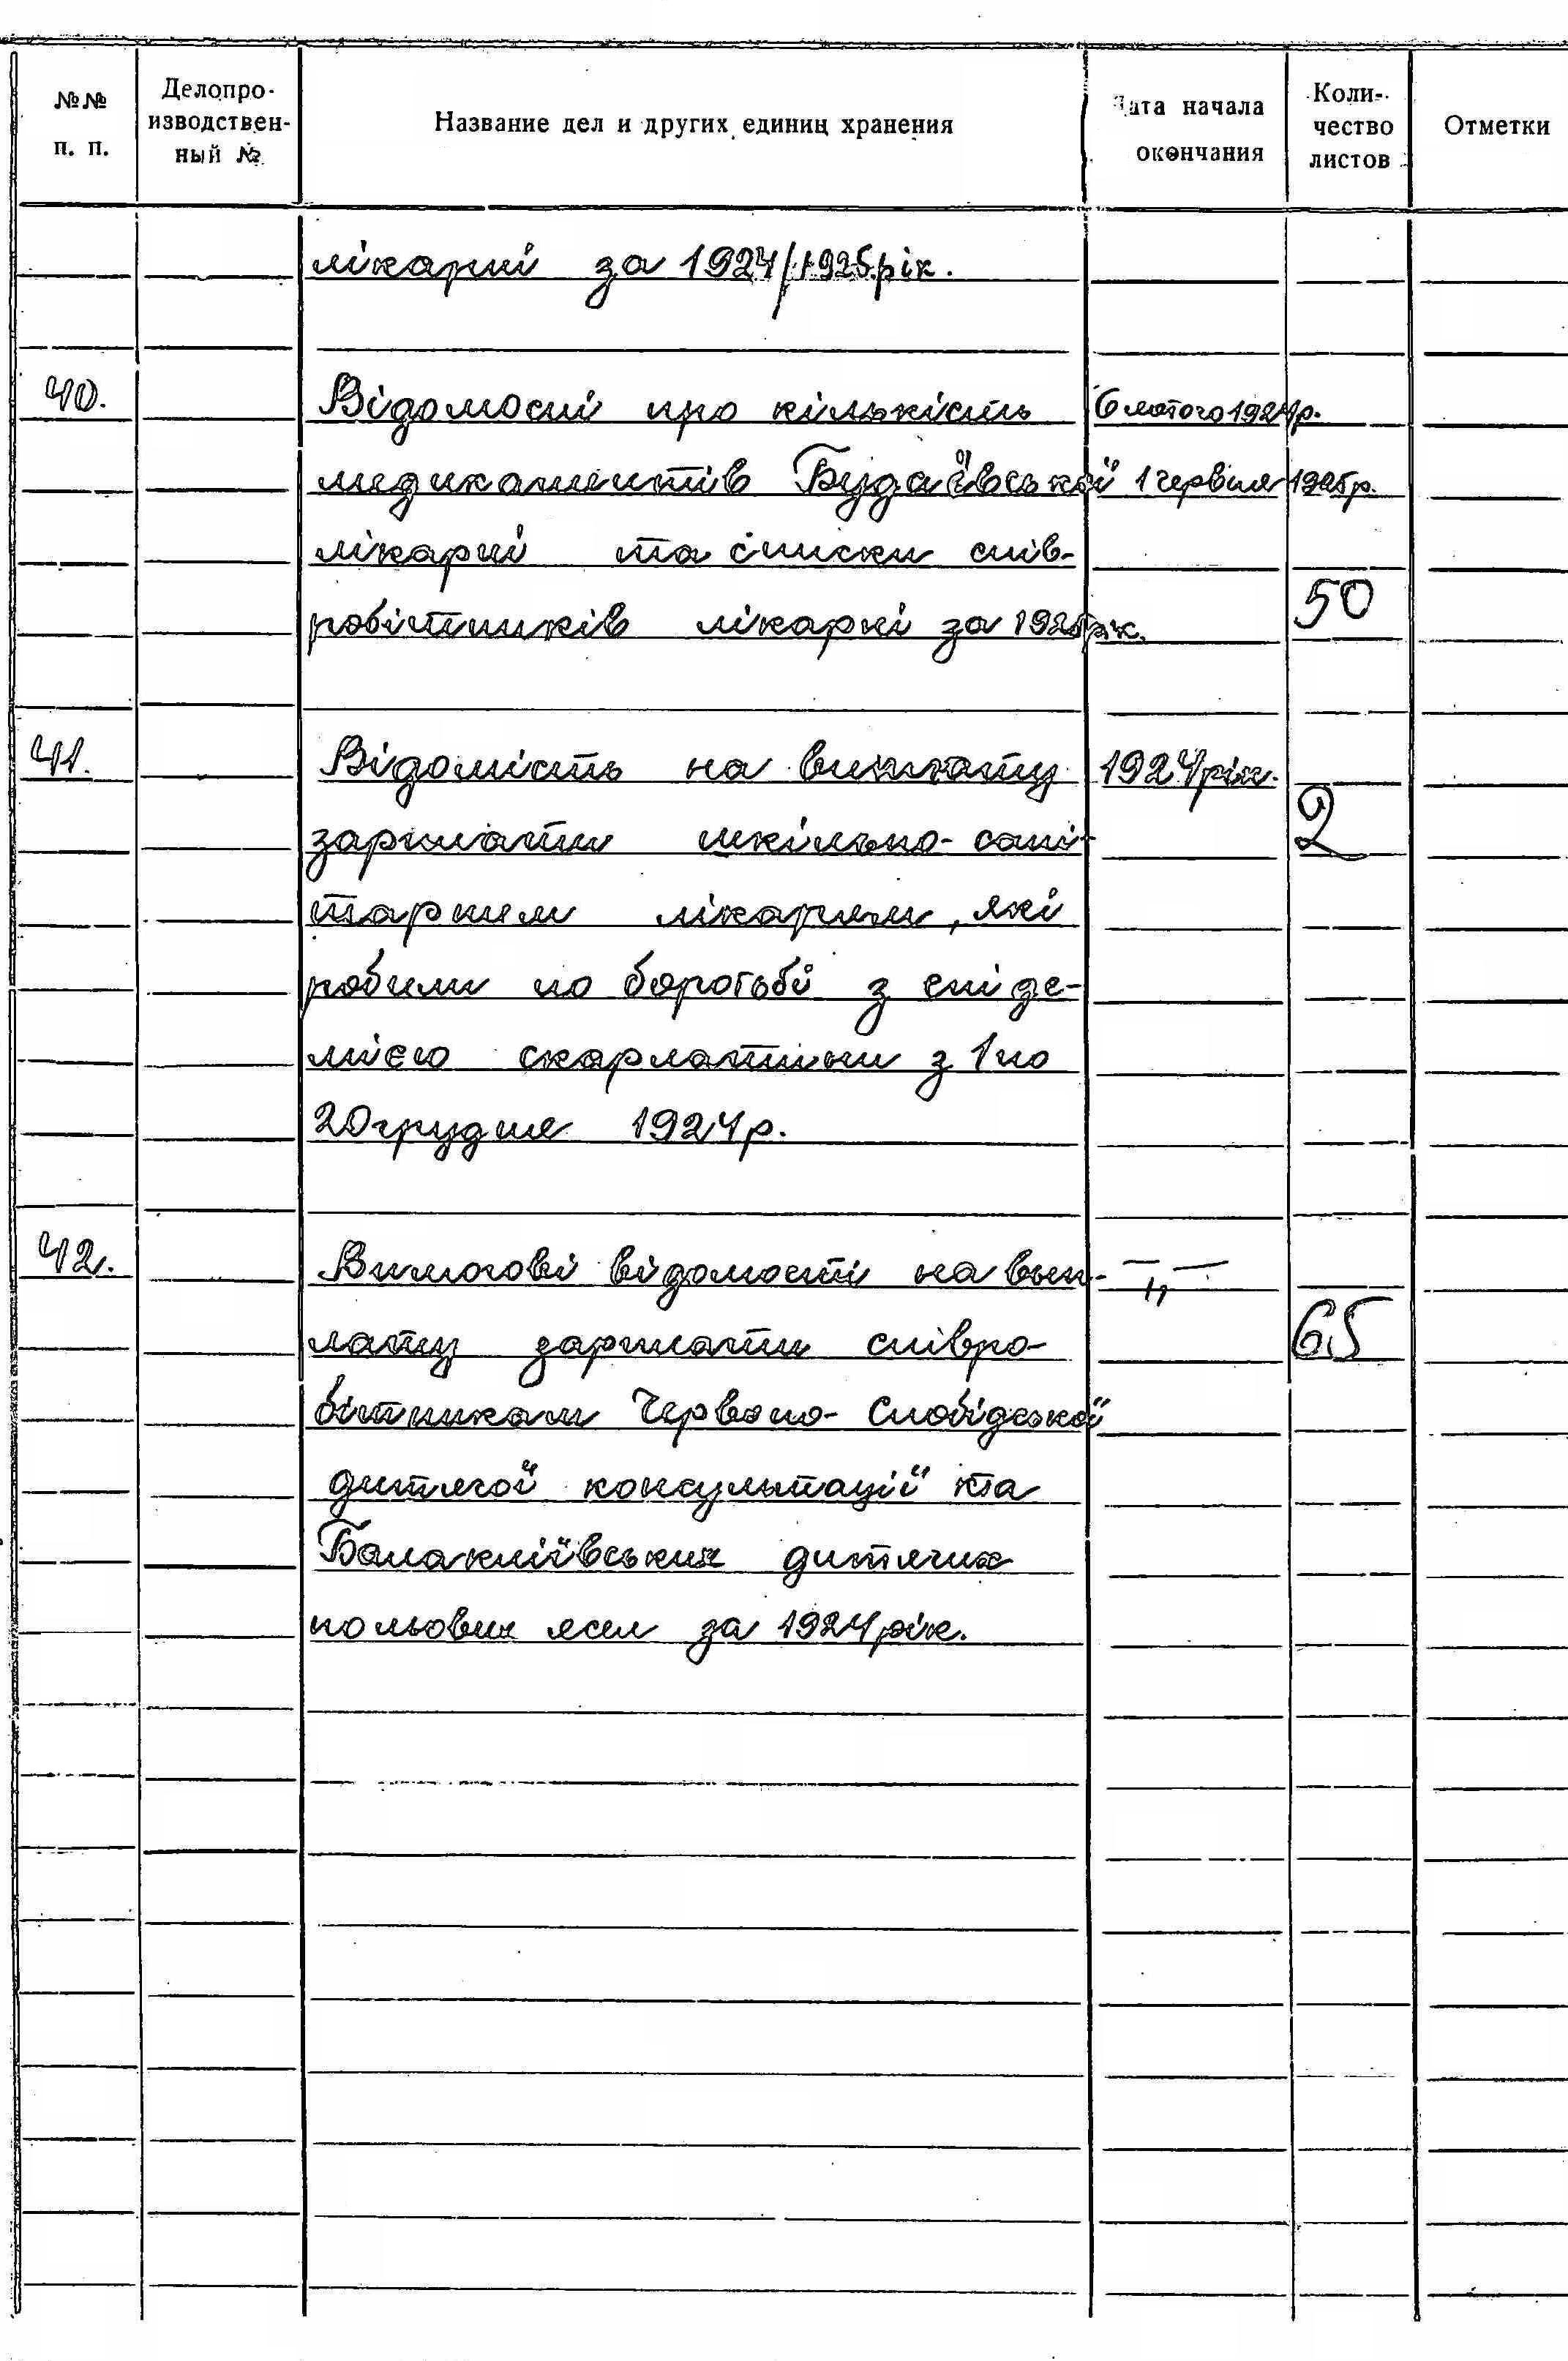 №№ п. п.
Делопро-
изводствен-
ный №
Название дел и других единиц хранения
Дата начала
окончания
Коли-
чество
листов
Отметки
лікарні за 1924/1925 рік.
40. Відомості про кількість 6 лютого 1924р.
медикаментів Будаївської 1 червня 1925р.
лікарні та списки спів-
робітників лікарні за 1925рік. 50
41. Відомість на виплату 1924рік.
зарплати шкільно-сані- 2
тарним лікарям, які
робили по боротьбі з епіде-
мією скарлатини з 1 по
20 грудня 1924р.
42. Вимогові відомості на вып- —"—
лату зарплати співро- 65
бітникам Червоно-Слобідської
дитячої консультації та
Балакліївських дитячих
польових ясел за 1924 рік.